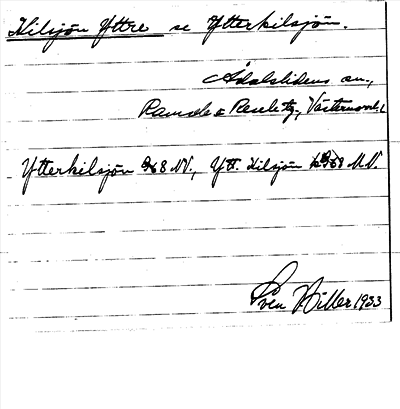 Kilsjön Yttre se Ytterkilsjön.
Ådalslidens sn.,
Ramsele & Resele tg, Västernorrl. l
Ytterkilsjön 68 NV., Ytt. Kilsjön 68 NV.
Sven Hiller 1933